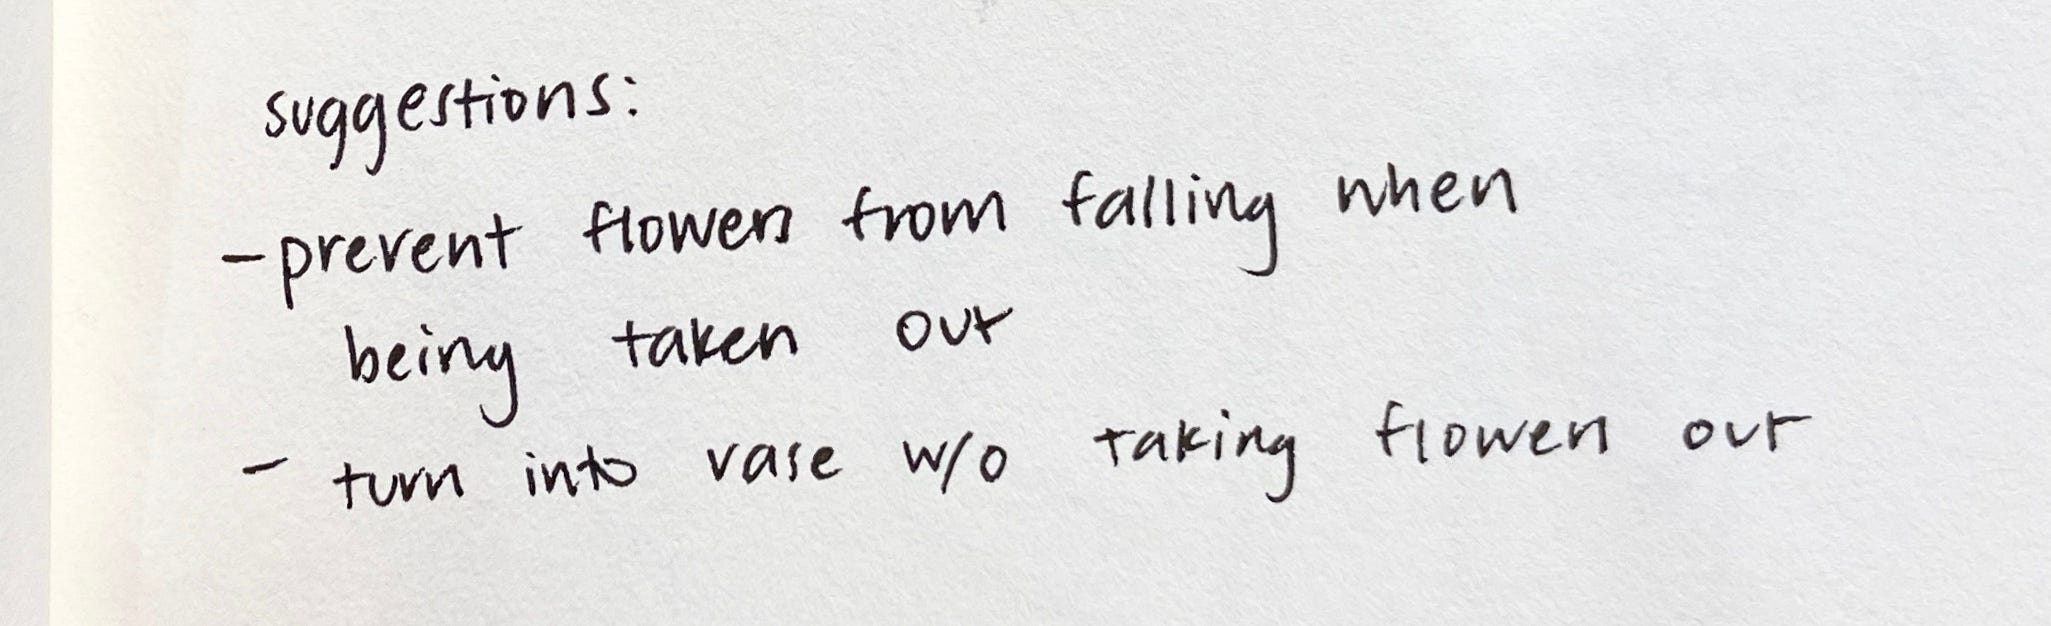 suggestions:
- prevent flowers from falling when
being taken out
- turn into vase w/o taking flowers out